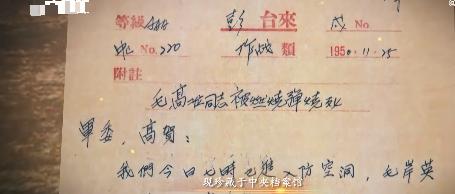 等級 彭 台來 戌 No.
No. 220 作战 類 1950.11.25
附註
毛高地同志被燃燒彈燒死
軍委，高賀：
我們今日七時已進入防空洞，毛岸英
现珍藏于中央档案馆